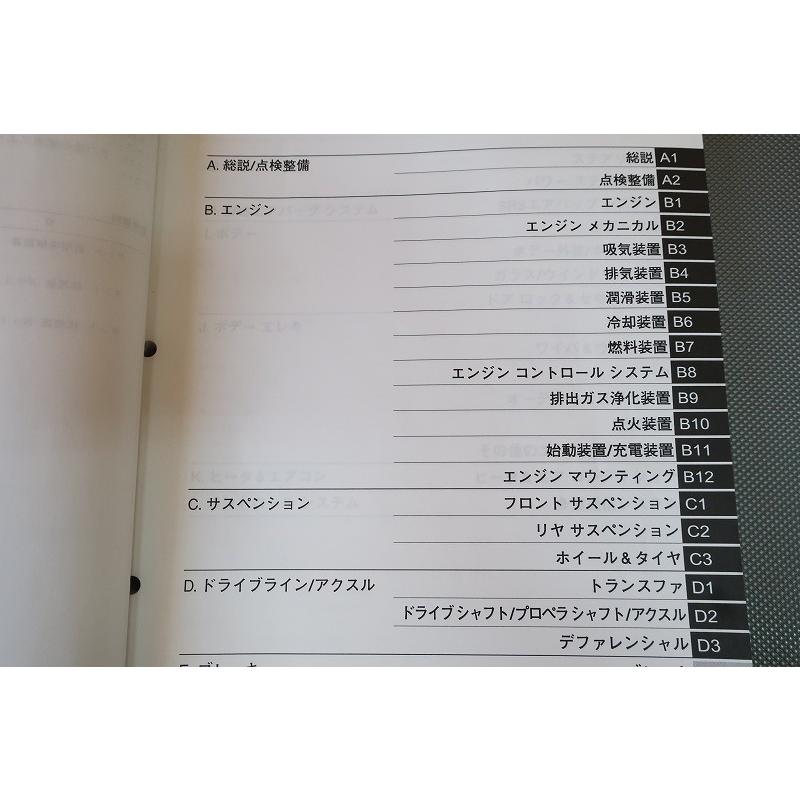 総説 A1
A. 総説/点検整備
点検整備 A2
エンジン B1
B. エンジン
エンジン メカニカル B2
吸気装置 B3
排気装置 B4
潤滑装置 B5
冷却装置 B6
燃料装置 B7
エンジン コントロール システム B8
排出ガス浄化装置 B9
点火装置 B10
始動装置/充電装置 B11
エンジン マウンティング B12
C. サスペンション フロント サスペンション C1
リヤ サスペンション C2
ホイール＆タイヤ C3
D. ドライブライン/アクスル トランスファ D1
ドライブ シャフト/プロペラ シャフト/アクスル D2
デファレンシャル D3